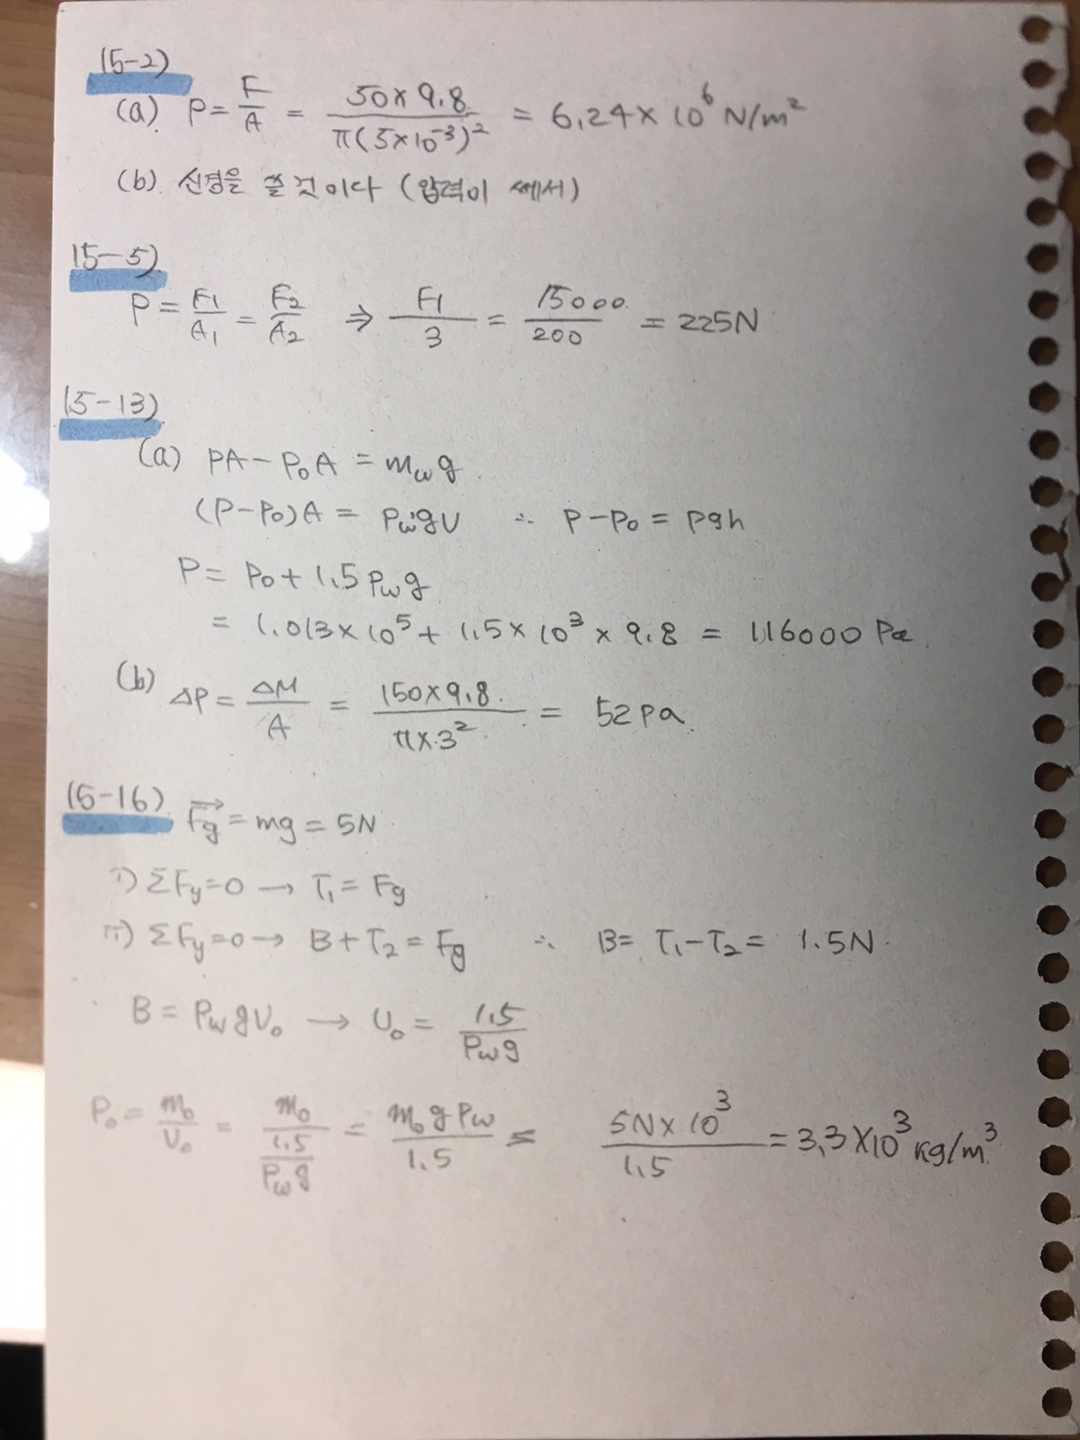 15-2)
(a) P = F/A = 50×9.8 / π(5×10⁻³)² = 6.24×10⁶ N/m²
(b). 신경을 쓸 것이다 (압력이 쎄서)
15-5)
P = F1/A1 = F2/A2 ⇒ F1/3 = 15000/200 = 225N
15-13)
(a) PA - P₀A = m_w g
(P-P₀)A = ρ_w gV ∴ P-P₀ = ρgh
P = P₀ + 1.5 ρ_w g
= 1.013×10⁵ + 1.5×10³×9.8 = 116000 Pa.
(b) ΔP = ΔM/A = 150×9.8 / π×3² = 52 pa
15-16) F⃗g = mg = 5N
i) ΣFy=0 → T₁ = Fg
ii) ΣFy=0 → B+T₂ = Fg ∴ B = T₁-T₂ = 1.5N
B = ρ_w gV₀ → V₀ = 1.5/ρ_w g
ρ₀ = m₀/V₀ = m₀/(1.5/ρ_w g) = m₀gρ_w/1.5 = 5N×10³/1.5 = 3.3×10³ kg/m³